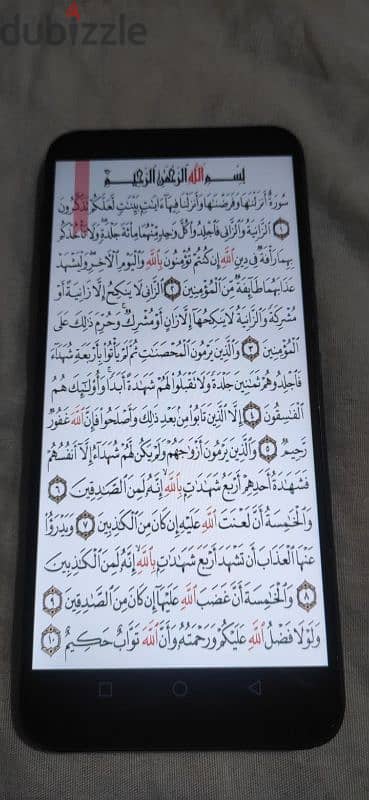 dubizzle
بِسْمِ اللَّهِ الرَّحْمَٰنِ الرَّحِيمِ
سُورَةٌ أَنزَلْنَاهَا وَفَرَضْنَاهَا وَأَنزَلْنَا فِيهَا آيَاتٍ بَيِّنَاتٍ لَّعَلَّكُمْ تَذَكَّرُونَ
١ الزَّانِيَةُ وَالزَّانِي فَاجْلِدُوا كُلَّ وَاحِدٍ مِّنْهُمَا مِائَةَ جَلْدَةٍ وَلَا تَأْخُذْكُم
بِهِمَا رَأْفَةٌ فِي دِينِ اللَّهِ إِن كُنتُمْ تُؤْمِنُونَ بِاللَّهِ وَالْيَوْمِ الْآخِرِ وَلْيَشْهَدْ
عَذَابَهُمَا طَائِفَةٌ مِّنَ الْمُؤْمِنِينَ ٢ الزَّانِي لَا يَنكِحُ إِلَّا زَانِيَةً أَوْ
مُشْرِكَةً وَالزَّانِيَةُ لَا يَنكِحُهَا إِلَّا زَانٍ أَوْ مُشْرِكٌ وَحُرِّمَ ذَٰلِكَ عَلَى
الْمُؤْمِنِينَ ٣ وَالَّذِينَ يَرْمُونَ الْمُحْصَنَاتِ ثُمَّ لَمْ يَأْتُوا بِأَرْبَعَةِ شُهَدَاءَ
فَاجْلِدُوهُمْ ثَمَانِينَ جَلْدَةً وَلَا تَقْبَلُوا لَهُمْ شَهَادَةً أَبَدًا وَأُولَٰئِكَ هُمُ
الْفَاسِقُونَ ٤ إِلَّا الَّذِينَ تَابُوا مِن بَعْدِ ذَٰلِكَ وَأَصْلَحُوا فَإِنَّ اللَّهَ غَفُورٌ
رَّحِيمٌ ٥ وَالَّذِينَ يَرْمُونَ أَزْوَاجَهُمْ وَلَمْ يَكُن لَّهُمْ شُهَدَاءُ إِلَّا أَنفُسُهُمْ
فَشَهَادَةُ أَحَدِهِمْ أَرْبَعُ شَهَادَاتٍ بِاللَّهِ إِنَّهُ لَمِنَ الصَّادِقِينَ ٦
وَالْخَامِسَةُ أَنَّ لَعْنَتَ اللَّهِ عَلَيْهِ إِن كَانَ مِنَ الْكَاذِبِينَ ٧ وَيَدْرَؤُا
عَنْهَا الْعَذَابَ أَن تَشْهَدَ أَرْبَعَ شَهَادَاتٍ بِاللَّهِ إِنَّهُ لَمِنَ الْكَاذِبِينَ
٨ وَالْخَامِسَةَ أَنَّ غَضَبَ اللَّهِ عَلَيْهَا إِن كَانَ مِنَ الصَّادِقِينَ ٩
وَلَوْلَا فَضْلُ اللَّهِ عَلَيْكُمْ وَرَحْمَتُهُ وَأَنَّ اللَّهَ تَوَّابٌ حَكِيمٌ ١٠